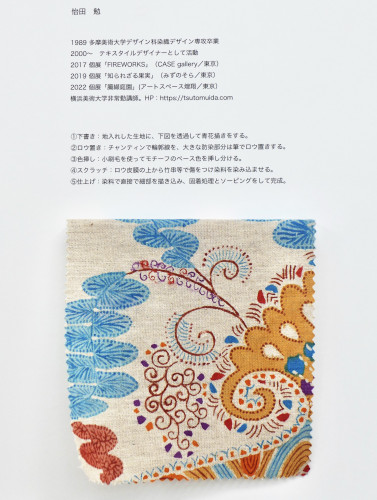 怡田 勉
1989 多摩美術大学デザイン科染織デザイン専攻卒業
2000〜 テキスタイルデザイナーとして活動
2017 個展「FIREWORKS」（CASE gallery／東京）
2019 個展「知られざる果実」（みずのそら／東京）
2022 個展「臓綺庭園」(アートスペース繭翔／東京）
横浜美術大学非常勤講師。HP：https://tsutomuida.com
①下書き：地入れした生地に、下図を透過して青花描きをする。
②ロウ置き：チャンティンで輪郭線を、大きな防染部分は筆でロウ置きする。
③色挿し：小刷毛を使ってモチーフのベース色を挿し分ける。
④スクラッチ：ロウ皮膜の上から竹串等で傷をつけ染料を染み込ませる。
⑤仕上げ：染料で直接で細部を描き込み、固着処理とソーピングをして完成。